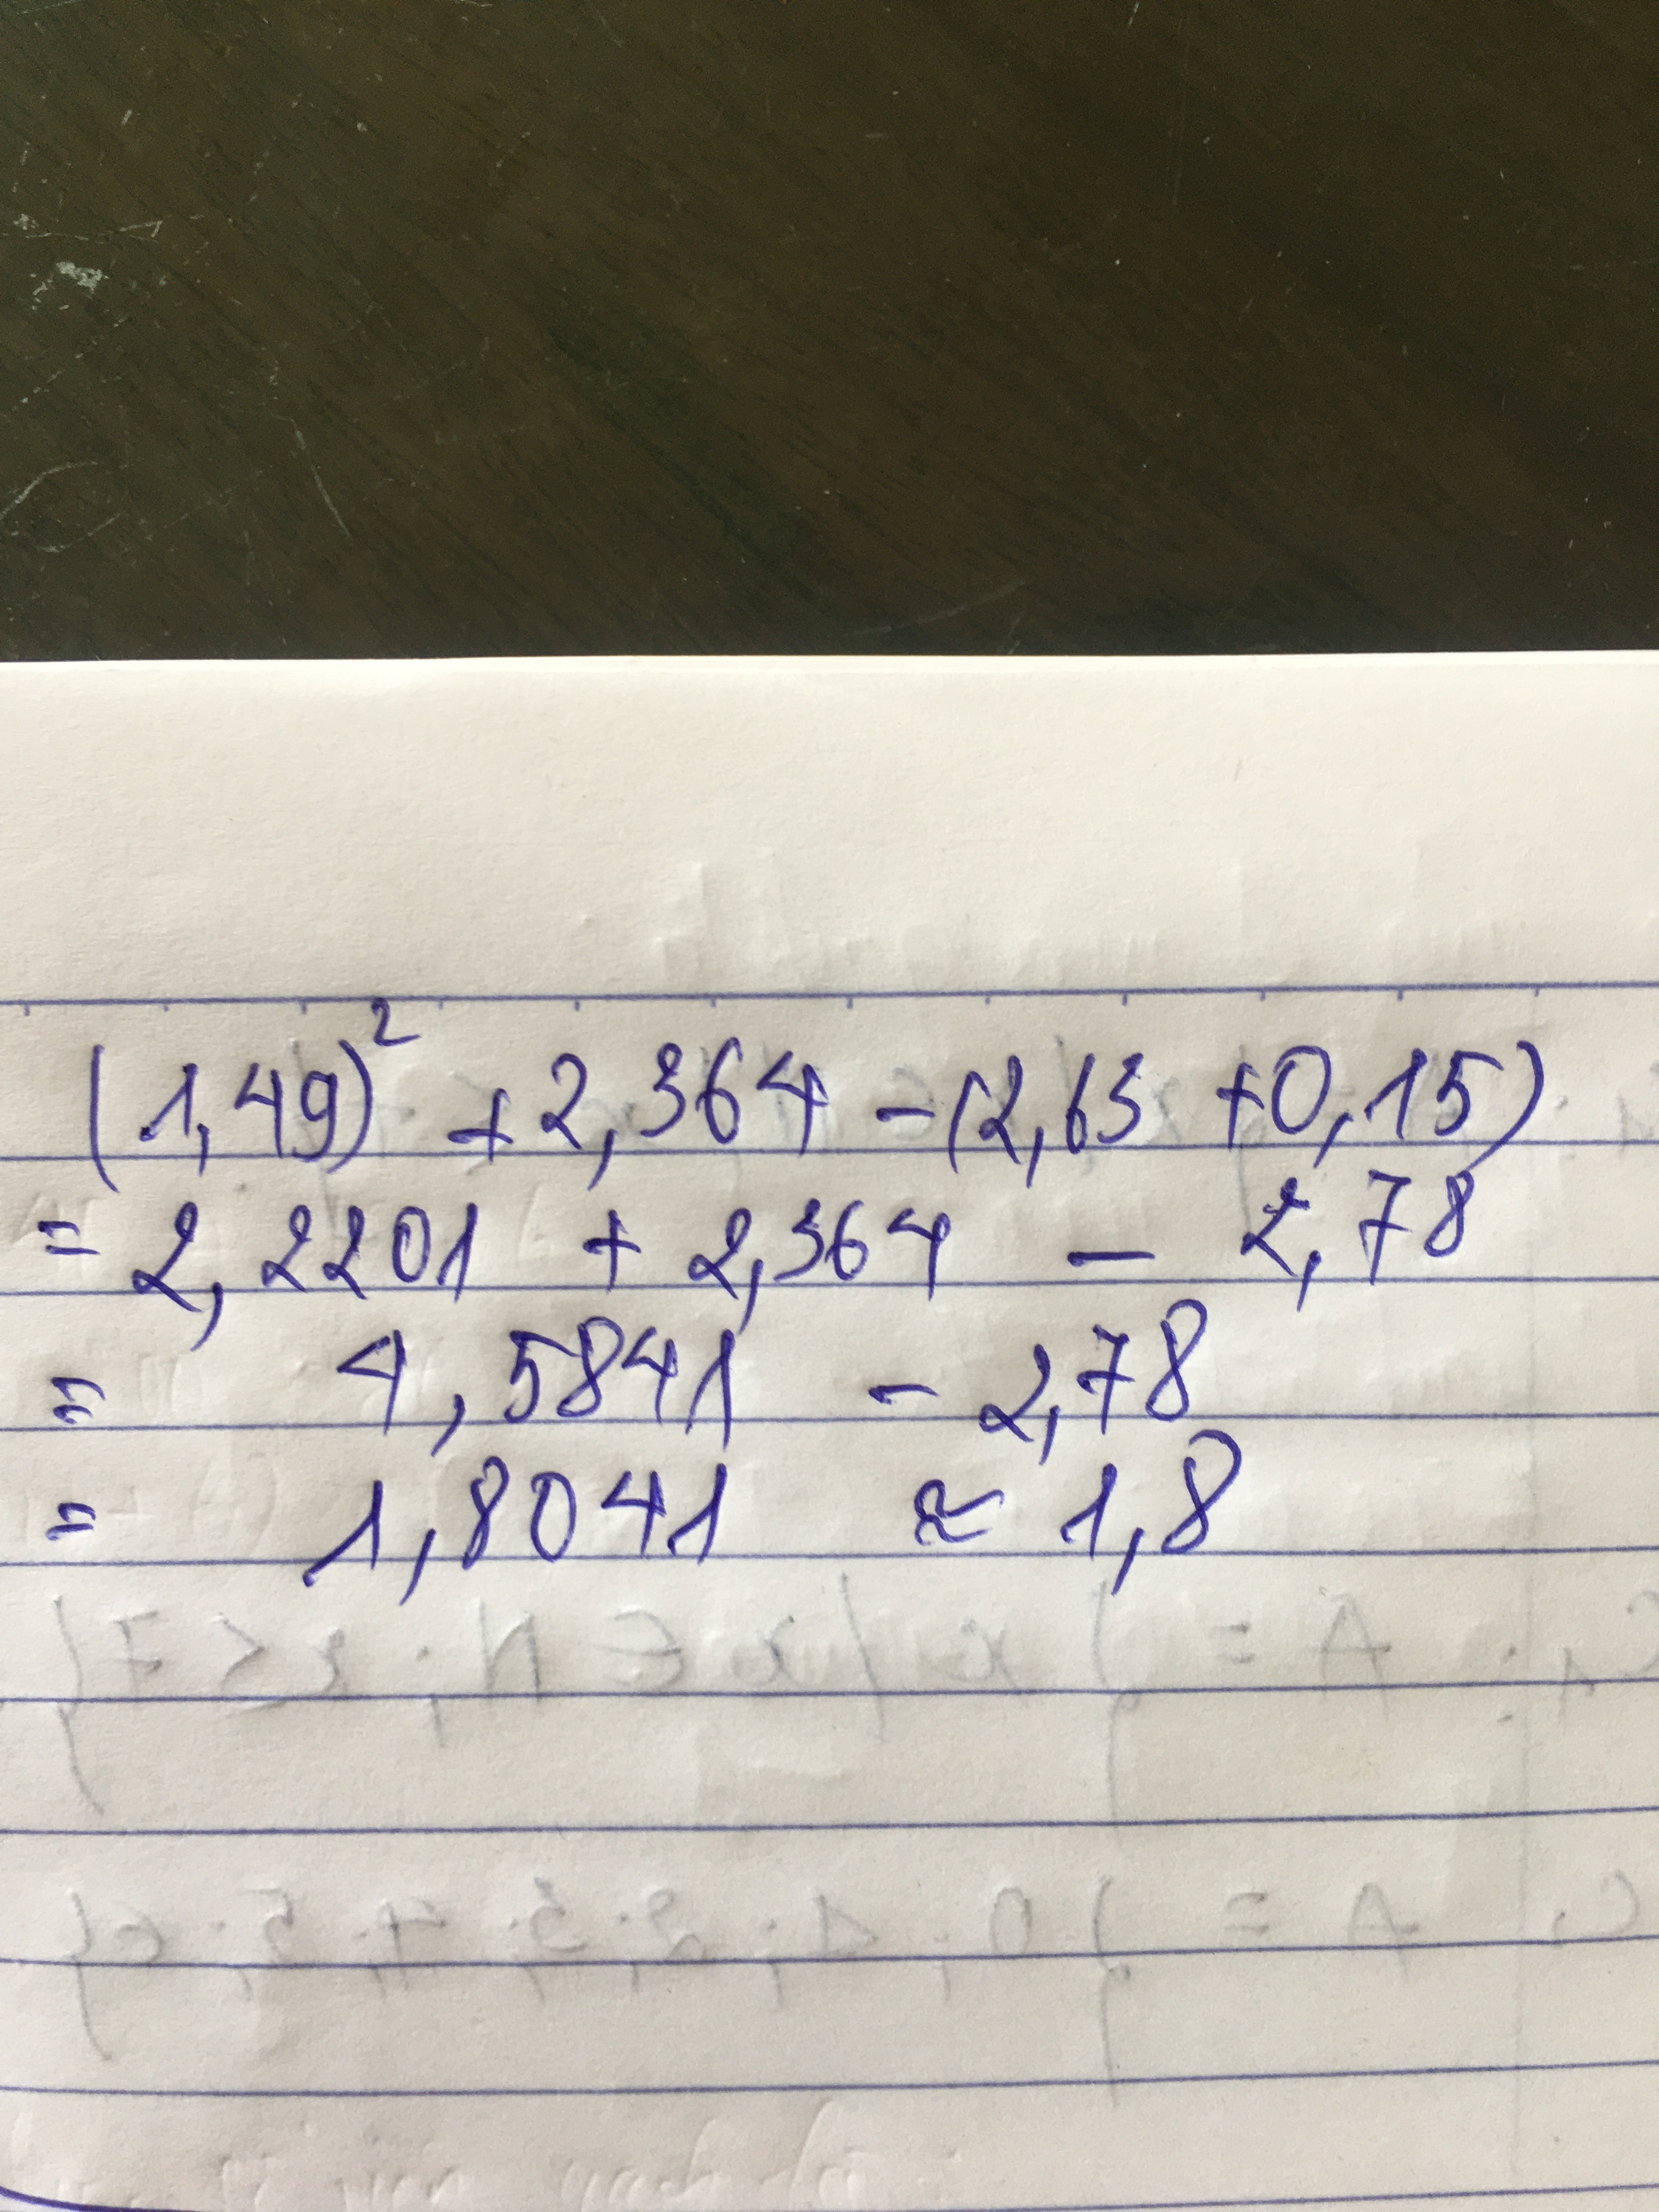 (1,49)² + 2,364 - (2,63 + 0,15)
= 2,2201 + 2,364 - 2,78
= 4,5841 - 2,78
= 1,8041 ≈ 1,8